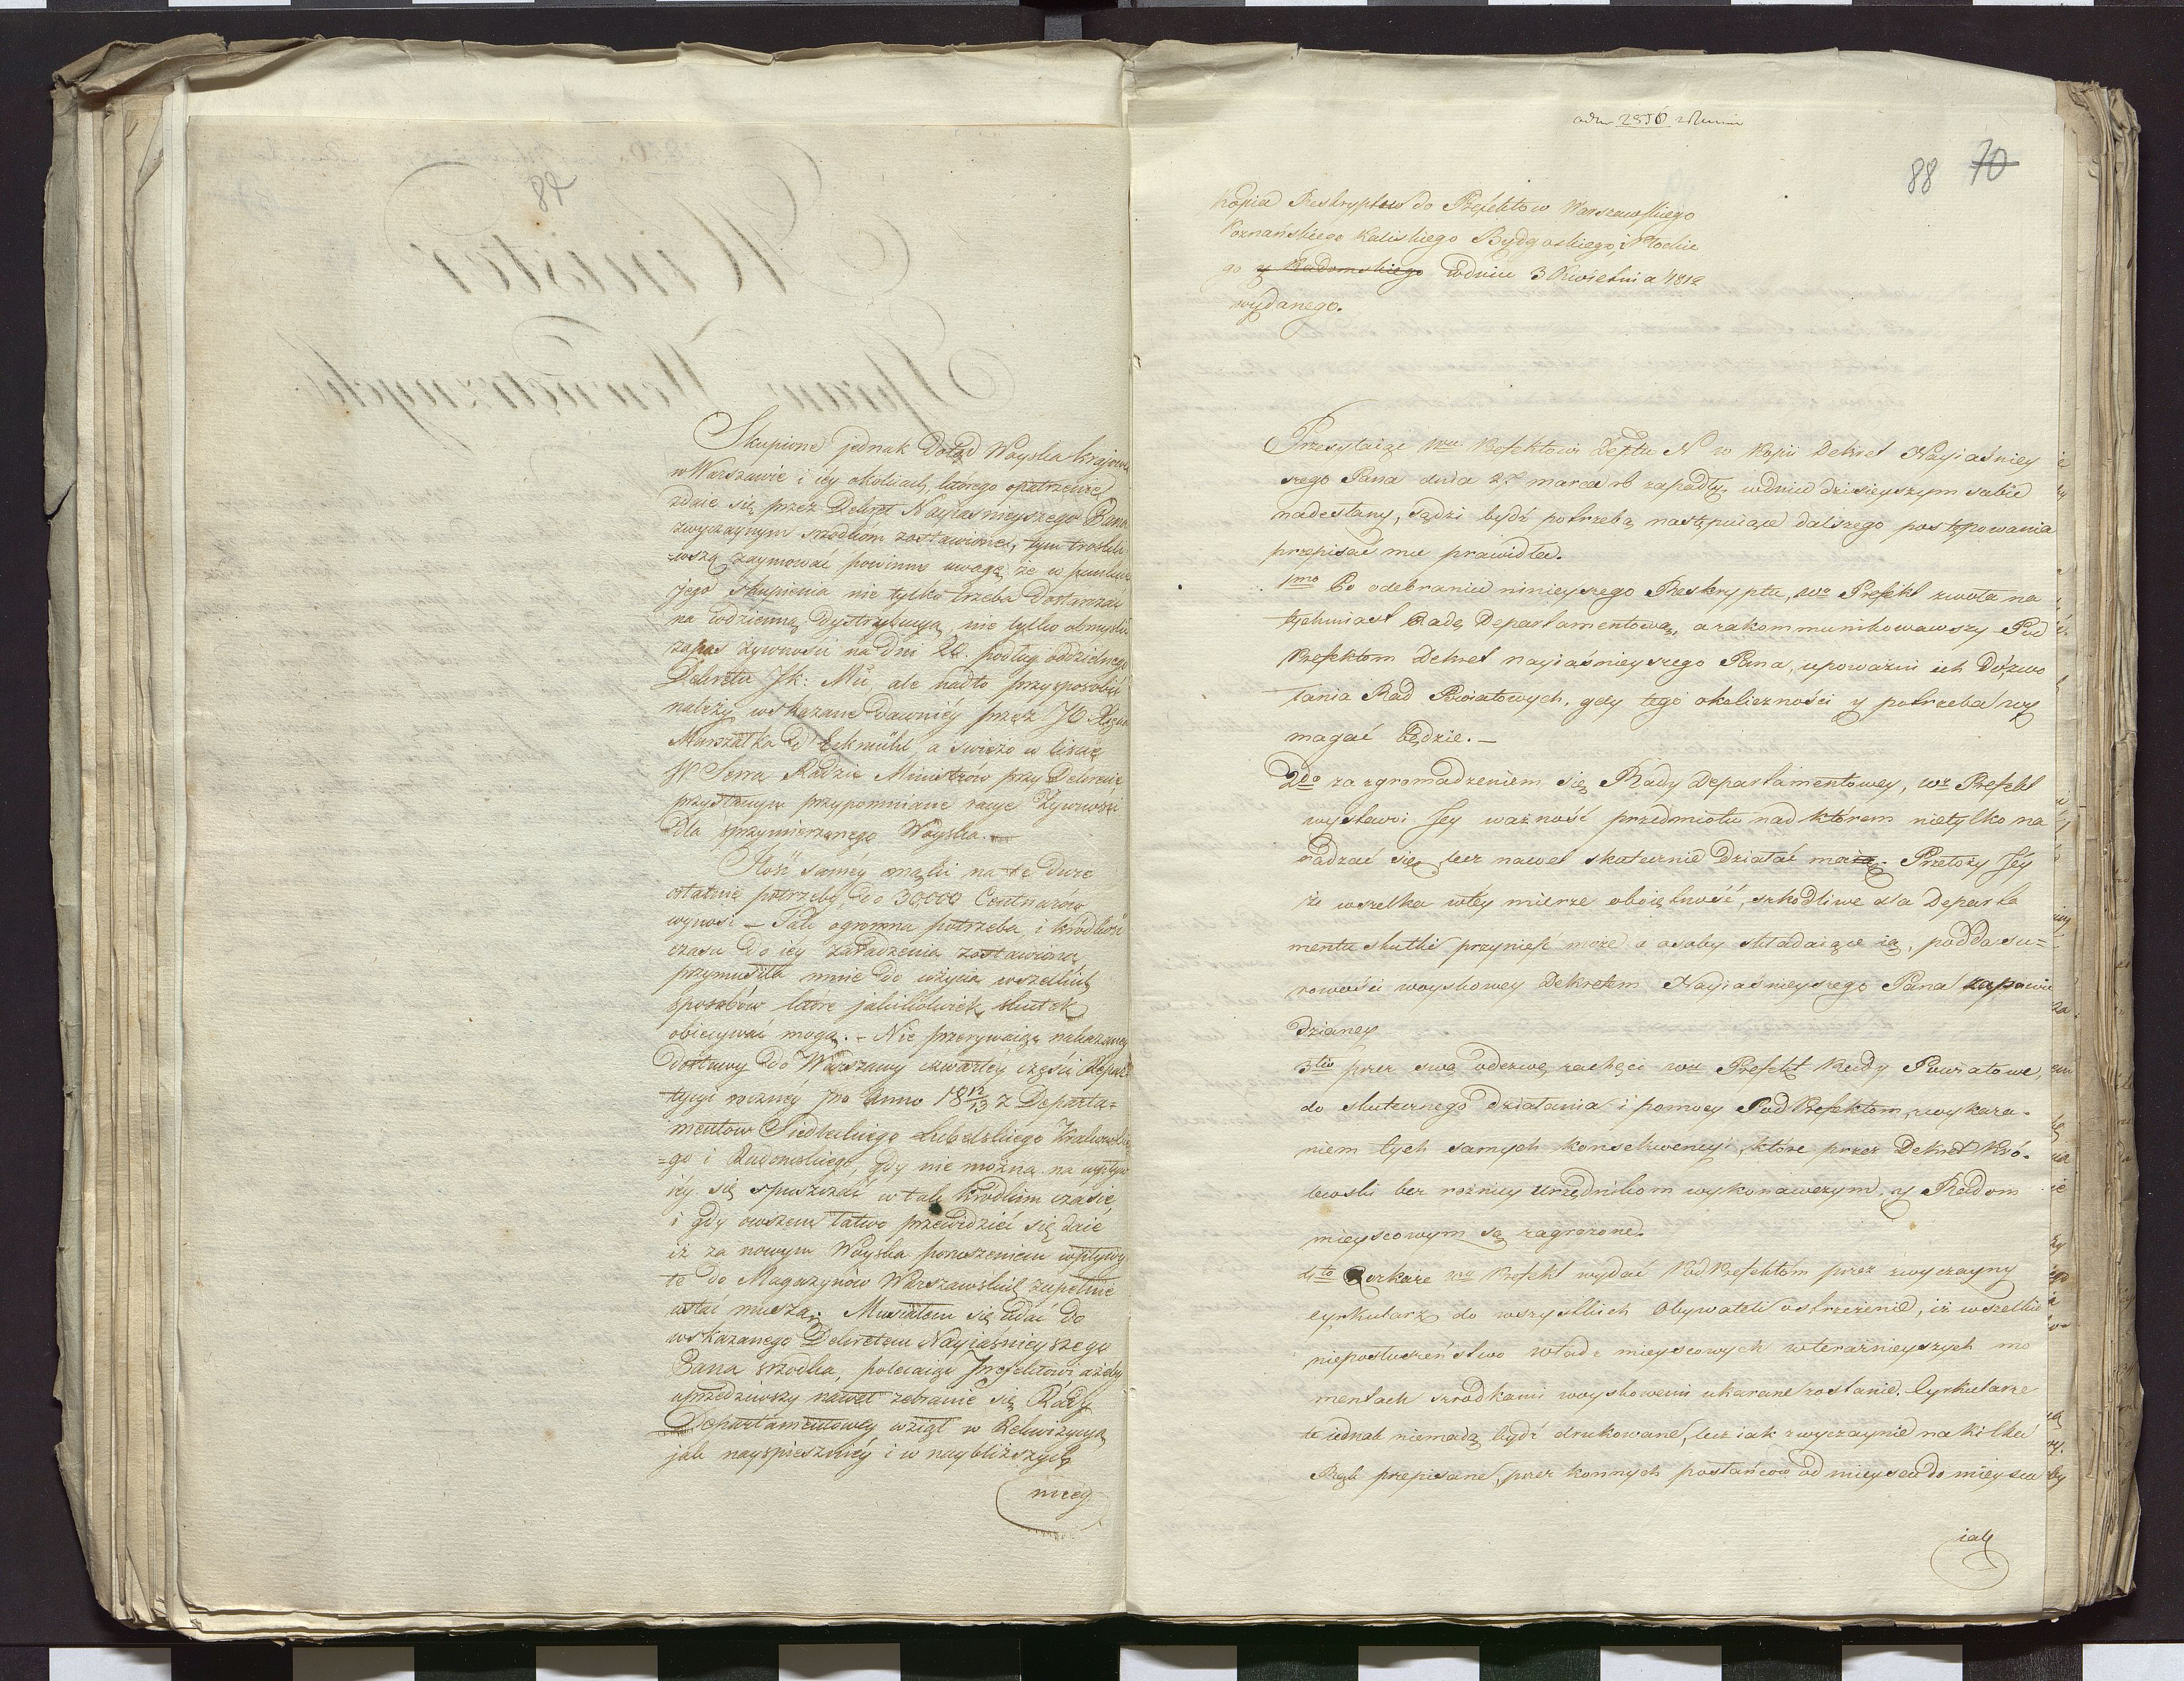 Skupione jednak Dotąd Woyska krajowe
w Warszawie i iéy okolicach, którego opatrzenie
zdaie się przez Dekret Nayiaśnieyszego Pana
zwyczaynym srzodkom zostawione, tym troskli
wszą zaymować powinno uwagę, że w punkcie
jego skupienia nie tylko trzeba dostarczać
na codzienną Dystrybucyą, nie tylko obmyślić
zapas żywności na Dni 20. podług oddzielnego
Dekretu Jk: Mci, ale nadto przysposobić
należy wskazane dawniéy przez JO Xięcia
Marszałka d'Eckmühl, a świeżo w liście
JP Serra Radzie Ministrów przy Dekrecie
przysłanym przypomniane racye Żywności
dla sprzymierzonego Woyska.
Ilość saméy mąki na te dwie
ostatnie potrzeby, do 30,000 Centnarów
wynosi – Tak ogromna potrzeba, i krótkość
czasu do iéy zaradzenia zostawiona
przymusiła mnie do użycia wszelkich
sposobów które jakikolwiek skutek
obiecywać mogą. – Nie przerywaiąc nakazaney
dostawy do Warszawy czwartéy części Repar
tycyi roczney pro Anno 18 12/13 z Departa=
mentow Siedleckiego Lubelskiego Krakowskie
=go i Radomskiego, gdy nie można na wpływ
iéy się spuszczać w tak krótkim czasie,
i gdy owszem łatwo przewidzieć się daie
iż za nowym Woyska poruszeniem wpływy
te do Magazynów Warszawskich zupełnie
ustać muszą; Musiałem się udać do
wskazanego Dekretem Nayiaśnieyszego
Pana srzodka, polecaiąc Prefektowi ażeby
uprzedzaiąc nawet zebranie się Rady
Departamentowey wziął w Rekwizycyą
jak nayspieszniéy i w naybliższych
mieg
88 70
Kopia Reskryptu do Prefektow Warszawskiego
Poznańskiego Kaliskiego Bydgoskiego, i Płockie
go y Radomskiego wdniu 3 Kwietnia 1812
wydanego.
Przesyłaiąc Wu Prefektowi Deptu N w kopii Dekret Nayiaśniey
szego Pana dnia 27 marca rb zapadły, wdniu dzisieyszym sobie
nadesłany, sądzi bydź potrzebą następuiące dalszego postępowania
przepisać mu prawidła.
1mo Po odebraniu ninieyszego Reskryptu, Wny Prefekt zwoła na
tychmiast Radę Departamentową, a zakommunikowawszy Pod
Prefektom Dekret nayiaśnieyszego Pana, upoważni ich do zwo
łania Rad Powiatowych, gdy tego okoliczności y potrzeba wy
magać będzie. –
2do za zgromadzeniem się Rady Departamentowey, Wny Prefekt
wystawi Jey ważność przedmiotu nad którem nietylko na
radzać się, lecz nawet skutecznie działać maią. Przełoży Jey
że wszelka wtéy mierze oboiętność, szkodliwe dla Departa
mentu skutki przynieść może a osoby składaiące ią, podda su=
rowości woyskowey Dekretem Nayiaśnieyszego Pana zapowie
dzianey
3tio przez swą odezwę zachęci Wny Prefekt Rady Powiatowe,
do skutecznego działania i pomocy Pod Prefektom, wykaza=
niem tych samych konsekwencyi, które przez Dekret Kró=
lewski bez rożnicy Urzędnikom wykonawczym, y Radom
mieyscowym są zagrożone.
4to Rozkaże Wny Prefekt wydać PodPrefektóm przez zwyczayny
cyrkularz do wszystkich Obywateli ostrzeżenie, iż wszelkie
nieposłuszeństwo władz mieyscowych wteraźnieyszych mo
mentach srzodkami woyskowemi ukarane zostanie. Cyrkularze
te iednak niemaią bydź drukowane, lecz iak zwyczaynie na kilku
Rąk przepisane, przez konnych posłańców od mieysca do mieysca
iak